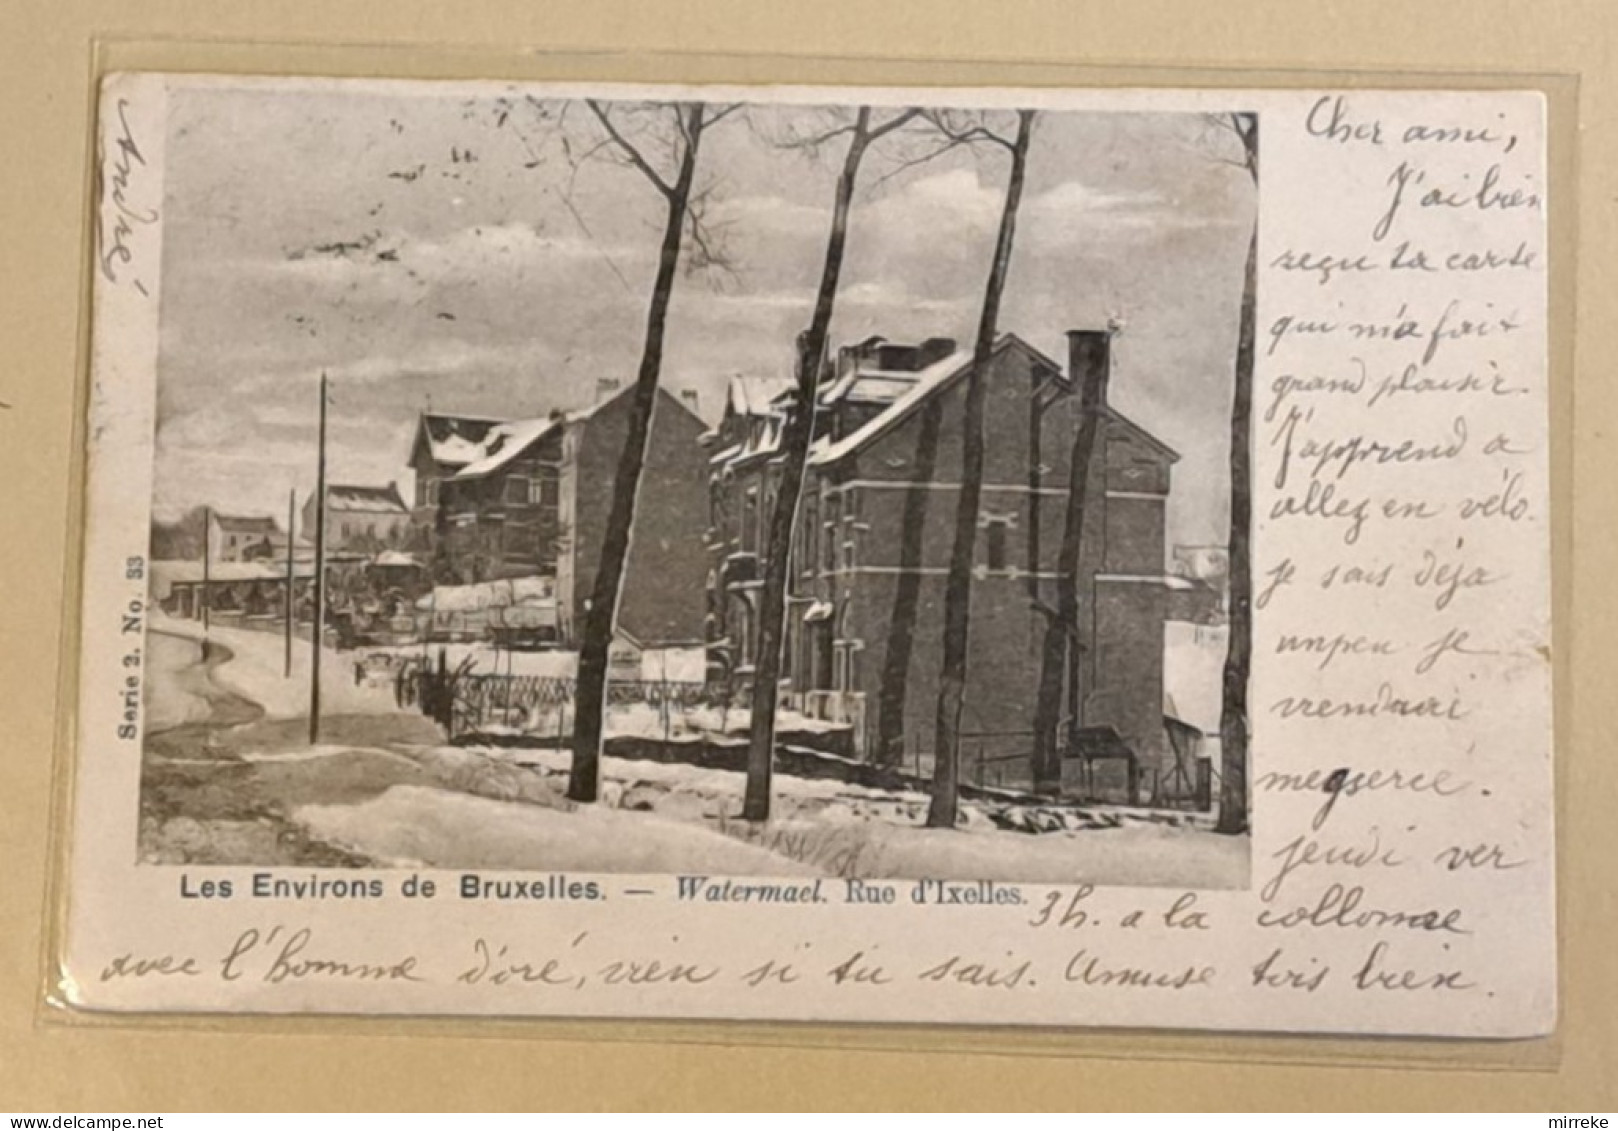 André
Cher ami,
J'ai bien
reçu ta carte
qui m'a fait
grand plaisir.
J'apprend a
allez en vélo.
je sais déja
unpeu je
viendrai
jeudi ver
3h. a la collonne
avec l'homme d'oré, vien si tu sais. Amuse tois bien.
Serie 2. No. 33
Les Environs de Bruxelles. — Watermael. Rue d'Ixelles.
delcampe.net
mirreke